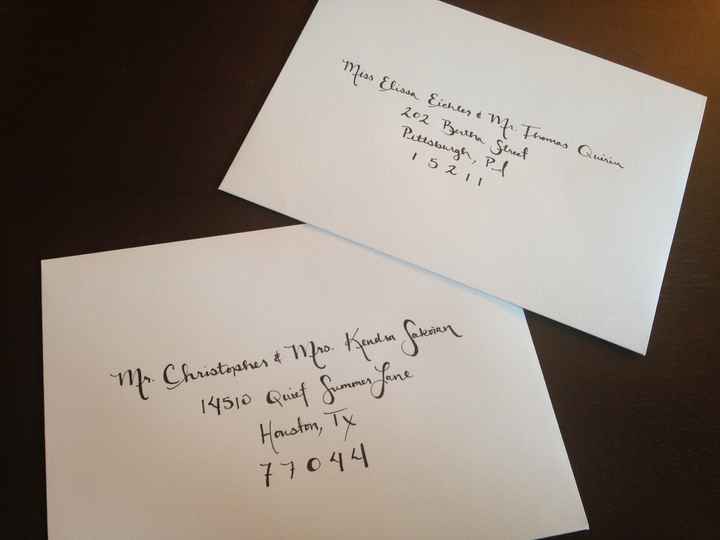 Miss Elissa Eichler & Mr. Thomas Quirin
202 Bertha Street
Pittsburgh, PA
15211
Mr. Christopher & Mrs. Kendra Sakvian
14510 Quiet Summer Lane
Houston, TX
77044